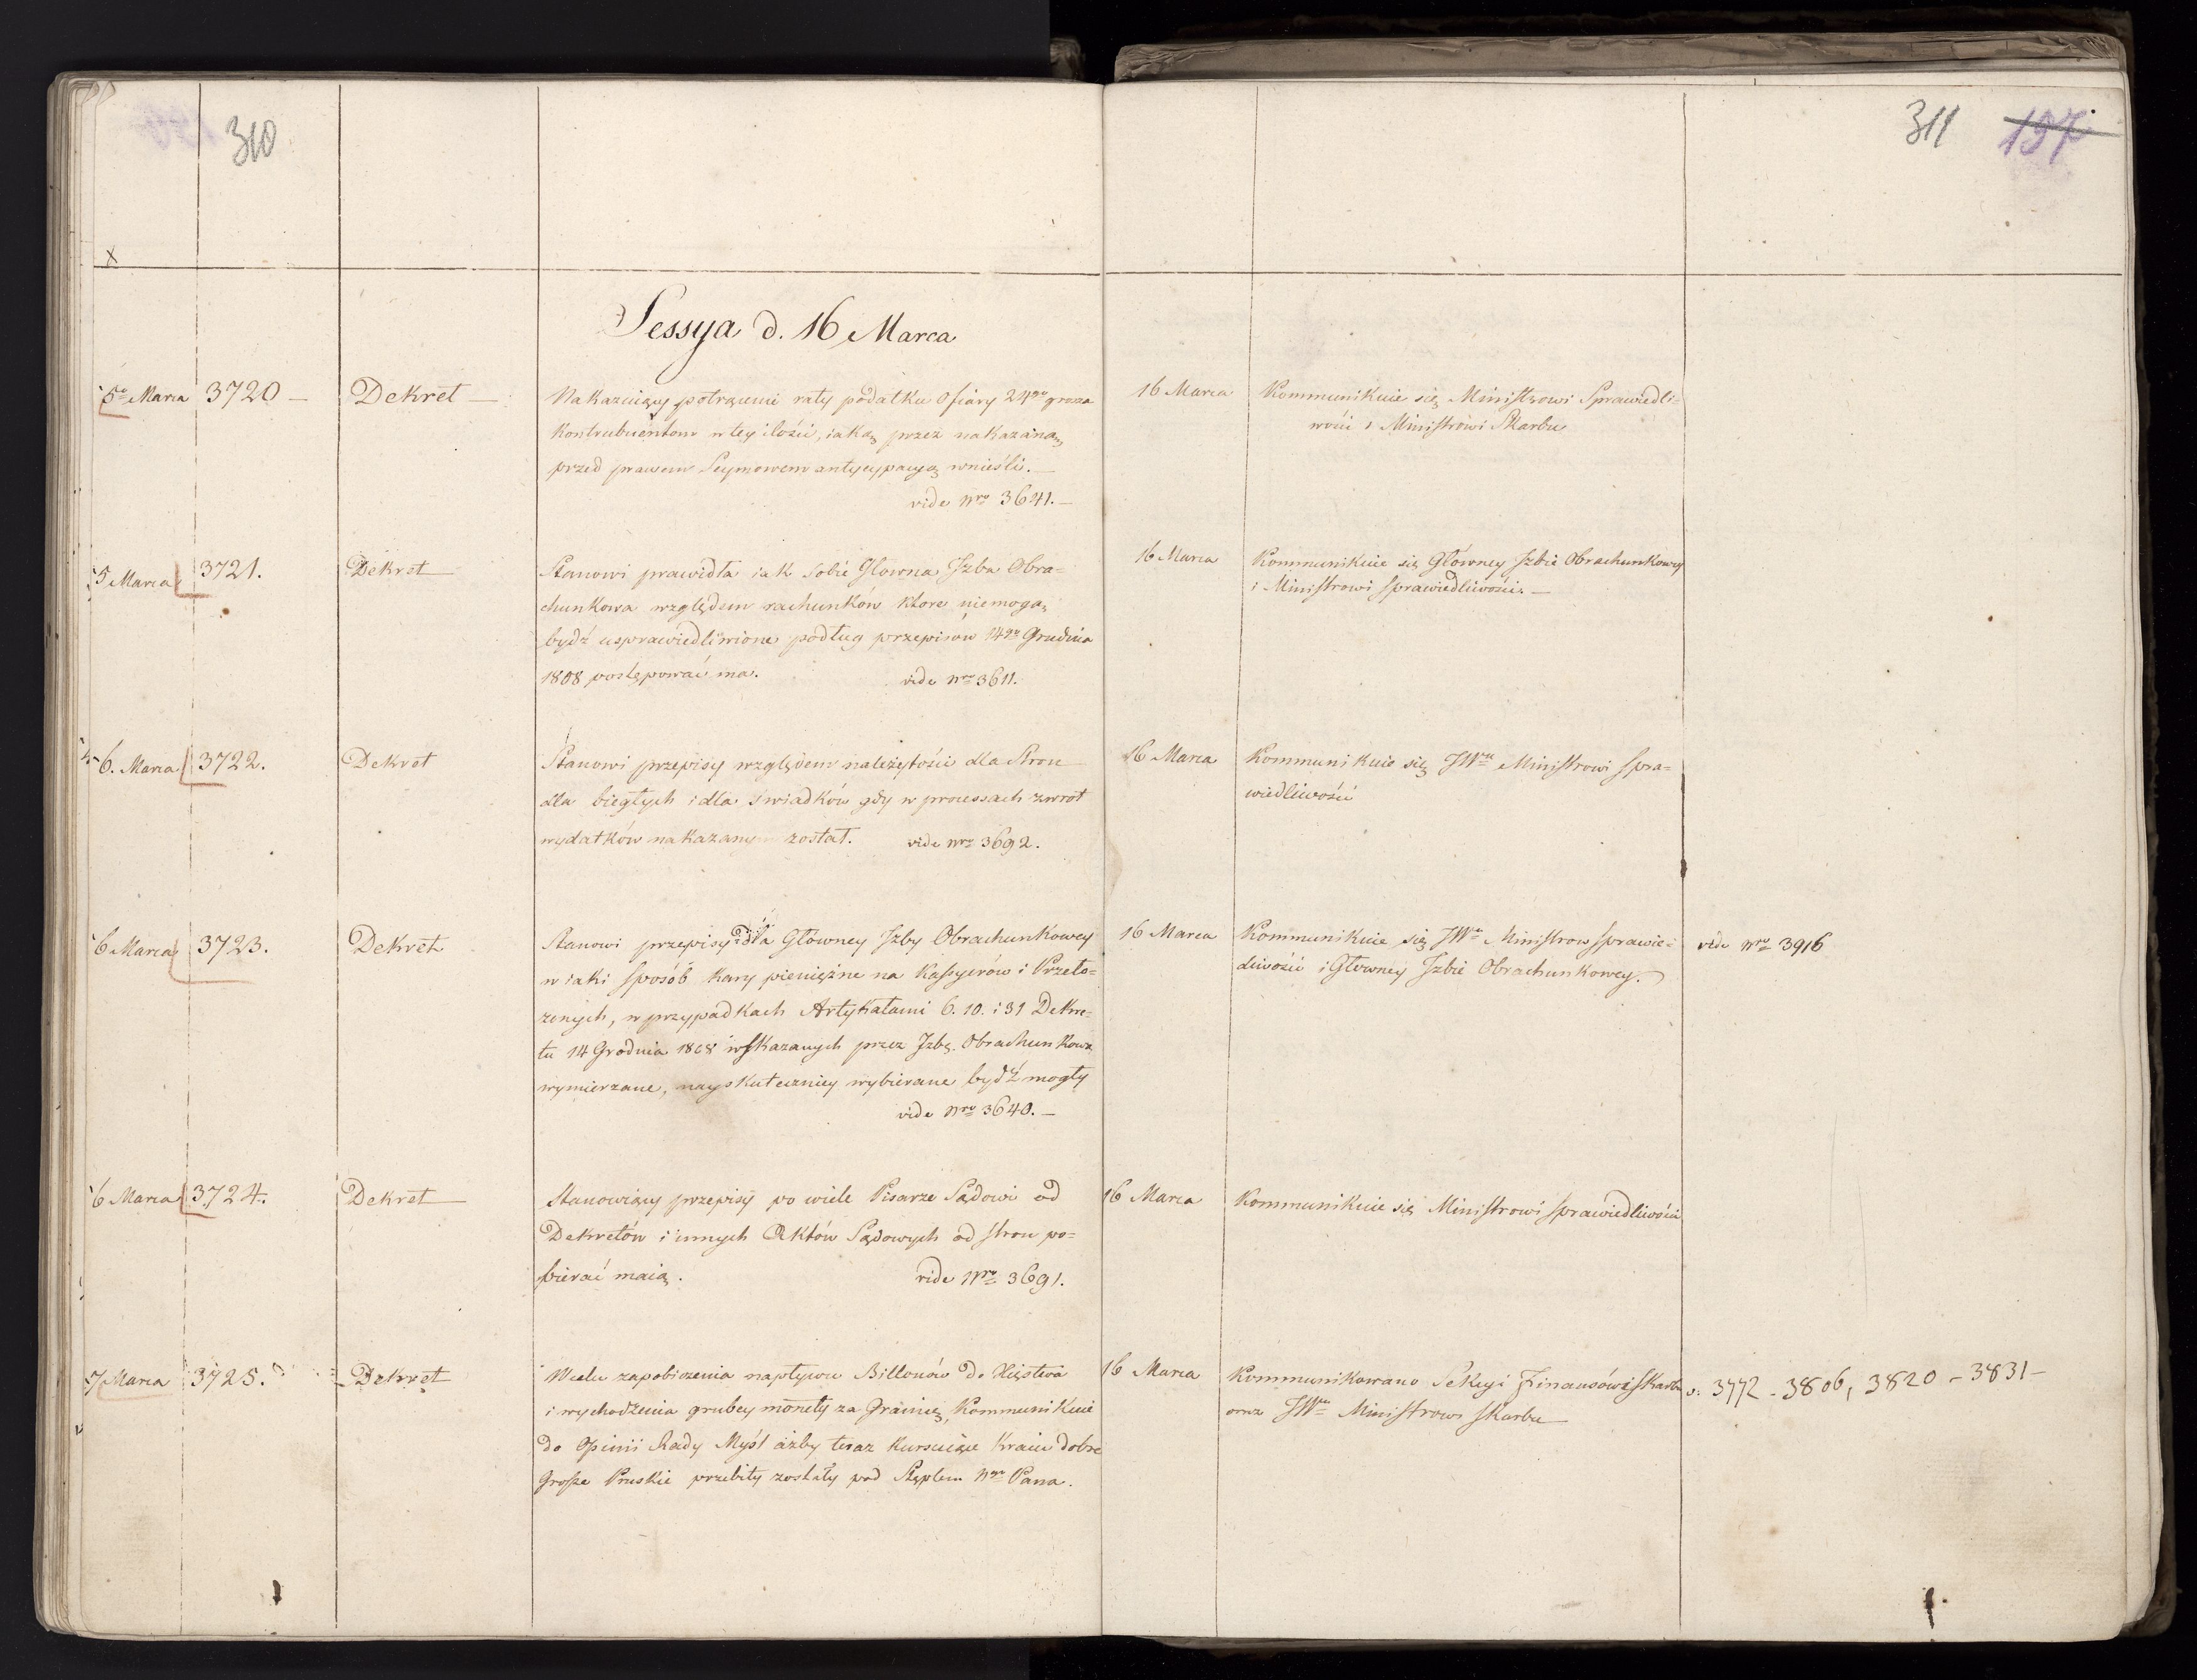 310
311 197
x
Sessya d. 16 Marca
5o Marca 3720 — Dekret —
Nakazuiący potrącenie raty podatku Ofiary 24go grosza
Kontrubuentom w tey ilości, iaką przez nakazaną
przed prawem Seymowem antycypacyą wnieśli. —
vide Nro 3641. —
16 Marca
Kommunikuie się Ministrowi Sprawiedli=
wości i Ministrowi Skarbu
5 Marca 3721. Dekret
Stanowi prawidła iak sobie Głowna Jzba Obra=
chunkowa względem rachunków ktore niemogą
bydź usprawiedliwione podług przepisów 14go Grudnia
1808 postępować ma. vide Nro 3611.
16 Marca
Kommunikuie się Główney Jzbie Obrachunkowey
i Ministrowi Sprawiedliwości. —
6. Marca 3722. Dekret
Stanowi przepisy względem należytości dla Stron
dla biegłych i dla świadków gdy w processach zwrot
wydatków nakazanym został. vide Nro 3692.
16 Marca
Kommunikuie się JWmu Ministrowi Spra=
wiedliwości
6 Marca 3723. Dekret
Stanowi przepisy dla Główney Jzby Obrachunkowey
w iaki sposób kary pieniężne na Kassyerów i Przeło=
żonych, w przypadkach Artykułami 6. 10. i 31 Dekre=
tu 14 Grudnia 1808 wskazanych przez Jzbę Obrachunkową
wymierzane, nayskuteczniey wybierane bydź mogły
vide Nro 3640. —
16 Marca
Kommunikuie się JWmu Ministrow Sprawie=
dliwości i Głowney Jzbie Obrachunkowey.
vide Nro 3916
6 Marca 3724. Dekret
Stanowiący przepisy po wiele Pisarze Sądowi od
Dekretów i innych Aktów Sądowych od stron po=
bierać maią. vide Nro 3691.
16 Marca
Kommunikuie się Ministrowi Sprawiedliwości
7 Marca 3725. Dekret
W celu zapobieżenia napływu Billonów do Xięstwa
i wychodzenia grubey monety za Granicę, Kommunikuie
do Opinii Rady Myśl ażby teraz kursuiące w kraiu dobre
Grosze Pruskie przebity zostały pod Stęplem Ngo Pana.
16 Marca
Kommunikowano Sekcyi Finansów i Skarbu
oraz JWmu Ministrowi Skarbu
v: 3772 - 3806, 3820 - 3831 —